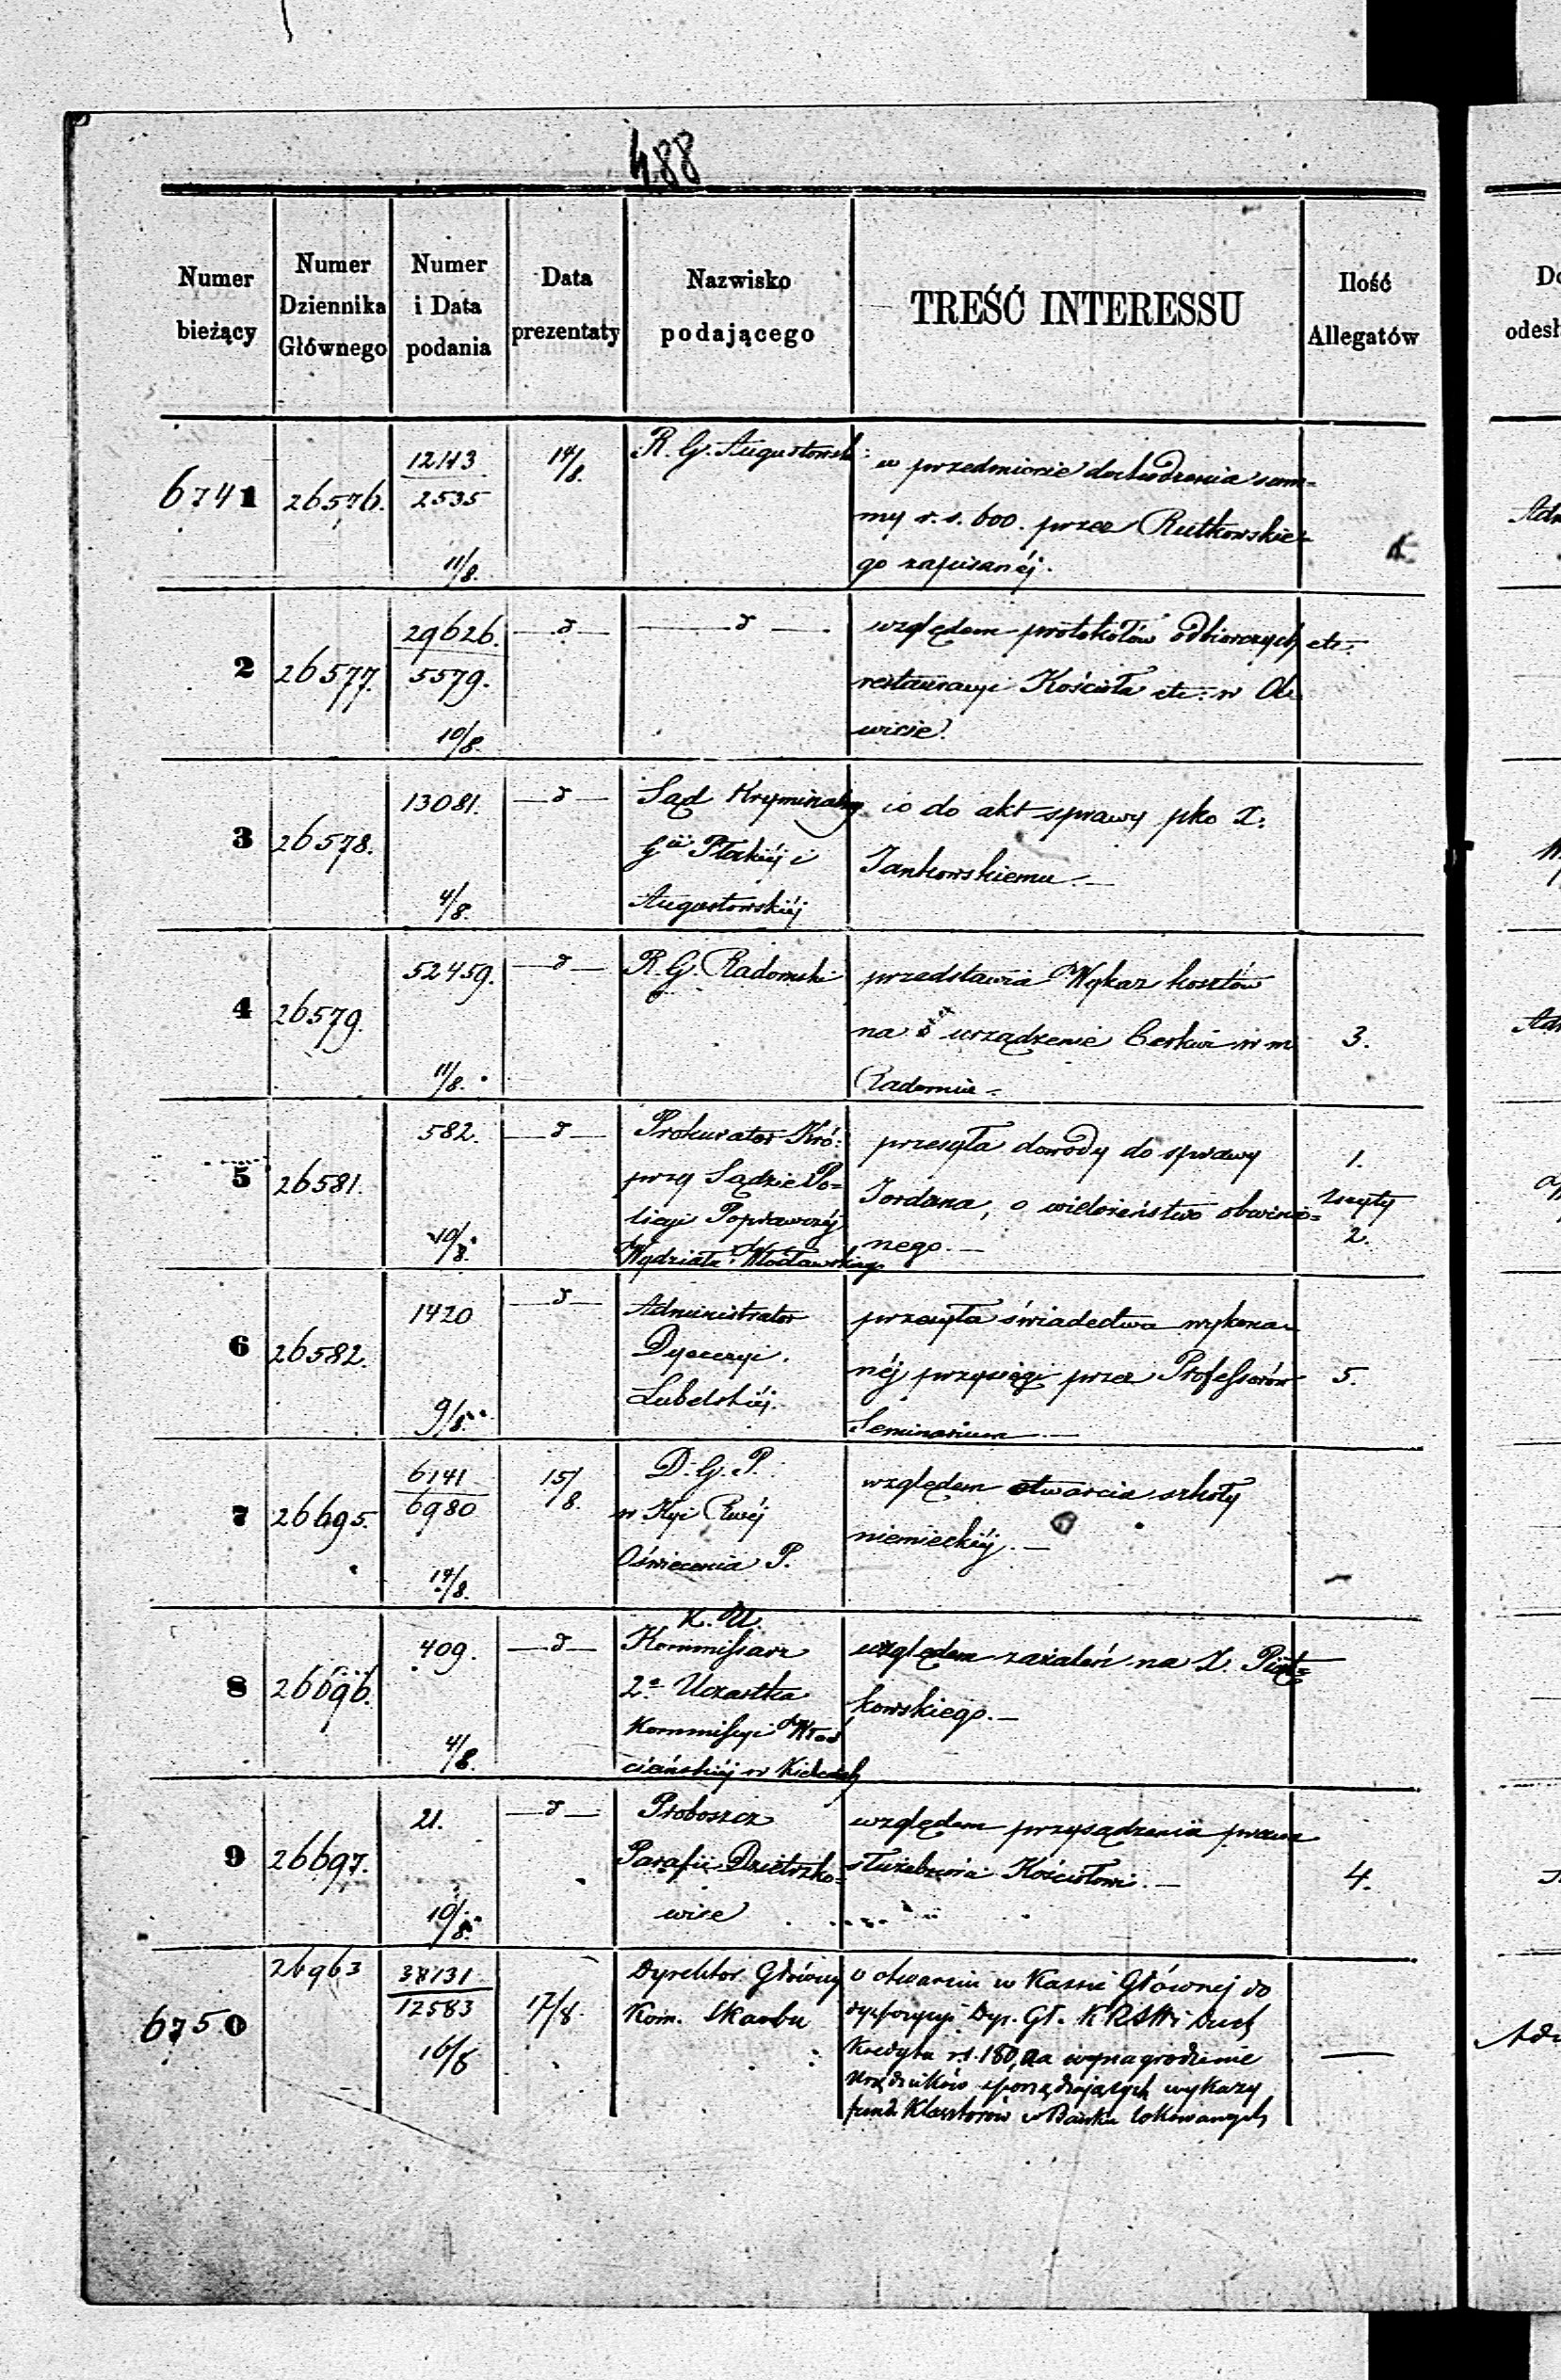 488
Numer bieżący
Numer Dziennika Głównego
Numer i Data podania
Data prezentaty
Nazwisko podającego
TREŚĆ INTERESSU
Ilość Allegatów
6741
26576.
12113
2535
11/8.
14/8.
R. G. Augustowski
w przedmiocie dochodzenia sum=
my r. s. 600. przez Rutkowskie=
go zapisanéj.
2
26577.
29626.
5579.
10/8.
—d—
—d—
względem protokółów odbiorczych etc.
restauracyi Kościoła etc. w
3
26578.
13081.
4/8.
—d—
Sąd Kryminalny
Gii Płockiéj i
Augustowskiéj
co do akt sprawy pko X.
Jankowskiemu.—
4
26579.
52459.
11/8.
—d—
R. G. Radomski
przedstawia Wykaz kosztów
na urządzenie Cerkwi w m.
Radomiu.
3.
5
26581.
582.
10/8.
—d—
Prokurator Kró:
przy Sądzie Po=
licyi Poprawczéj
Wydziału Włocławskiego
przesyła dowody do sprawy
Jordana, o wielożeństwo obwinio=
nego.—
1.
Zeszyty
2.
6
26582.
1420
9/8.
—d—
Administrator
Dyecezyi
Lubelskiéj.
przesyła świadectwa wykona=
néj przysięgi przez Professorów
Seminarium.—
5.
7
26695.
6141
6980
14/8.
15/8.
D. G. P.
w Kyi Rwéj
Oświecenia P.
względem otwarcia szkoły
niemieckiéj.—
8
26696.
409.
4/8.
—d—
K. U.
Kommissarz
2o Uczastka
Kommissyi Włoś
ciańskiéj w Kielcach
względem zażaleń na X. Piąt=
kowskiego.—
9
26697.
21.
10/8.
—d—
Proboszcz
Parafii Dzietrzko=
wice
względem przysądzenia prawa
służebności Kościołowi.—
4.
6750
26963
38131
12583
16/8
17/8.
Dyrektor Główny
Kom. Skarbu
o otwarciu w Kassie Głównej do
dyspozycyi Dyr. Gł. KRSW i Duch
Kredytu rs. 180, na wynagrodzenie
urzędników sporządzających wykazy
fund. Klasztorów w Banku lokowanych
—